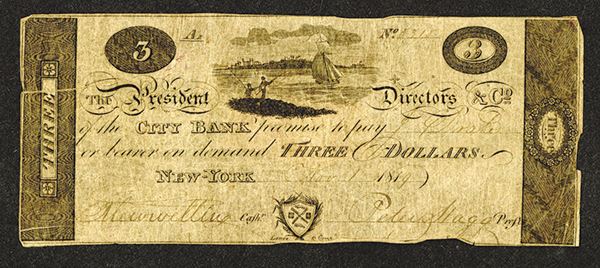 3 A. No. 3
The President Directors & Co.
of the CITY BANK promise to pay
or bearer on demand THREE DOLLARS
NEW-YORK Nov. 1 1814
Cash. Peter Stagg Prest.
THREE
Three